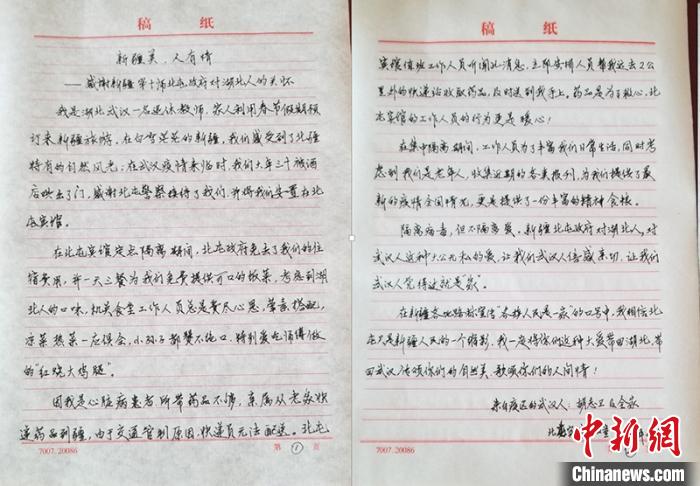 稿 纸
新疆美，人有情
——感谢新疆第十师北屯政府对湖北人的关怀
我是湖北武汉一名退休教师，家人利用春节假期预
订来新疆旅游。在白雪茫茫的新疆，我们感受到了北疆
特有的自然风光；在武汉疫情来临时，我们大年三十被酒
店哄出了门，感谢北屯警察接待了我们，并将我们安置在北
屯宾馆。
在北屯宾馆定点隔离期间，北屯政府免去了我们的住
宿费用，并一天三餐为我们免费提供可口的饭菜，考虑到湖
北人的口味，机关食堂工作人员总是费尽心思，荤素搭配，
凉菜热菜一应俱全，小孙子都赞不绝口，特别爱吃师傅做
的“红烧大鸡腿”。
因我是心脏病患者，所带药品不够，亲属从老家快
递药品到疆，由于交通管制原因，快递员无法配送。北屯
7007.20086 第 1 页
稿 纸
宾馆值班工作人员听闻此消息，立即安排人员帮我远去2公
里外的快递站收取药品，及时送到我手上。药品是为了救心，北
屯宾馆的工作人员的行为更是暖心！
在集中隔离期间，工作人员为了丰富我们日常生活，同时考
虑到我们是老年人，收集近期的各类报刊，为我们提供了最
新的疫情全国情况，更是提供了一份丰富的精神食粮。
隔离病毒，但不隔离爱。新疆北屯政府对湖北人，对
武汉人这种大公无私的爱，让我们武汉人倍感亲切，让我们
武汉人觉得这就是“家”。
在新疆各地路标宣传“各族人民是一家”的口号中，我相信北
屯只是新疆人民的一个缩影，我一定将你们这种大爱带回湖北，带
回武汉传颂你们的自然美，歌颂你们的人间情！
来自疫区的武汉人：胡志卫及全家
7007.20086
中新网
Chinanews.com